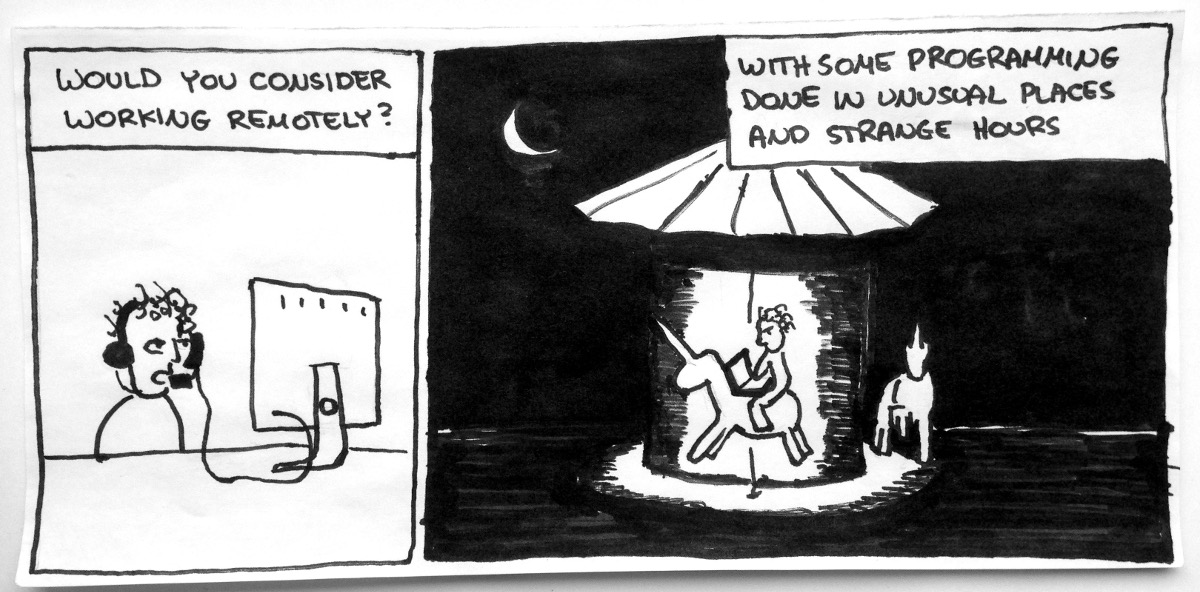 WOULD YOU CONSIDER
WORKING REMOTELY?
WITH SOME PROGRAMMING
DONE IN UNUSUAL PLACES
AND STRANGE HOURS